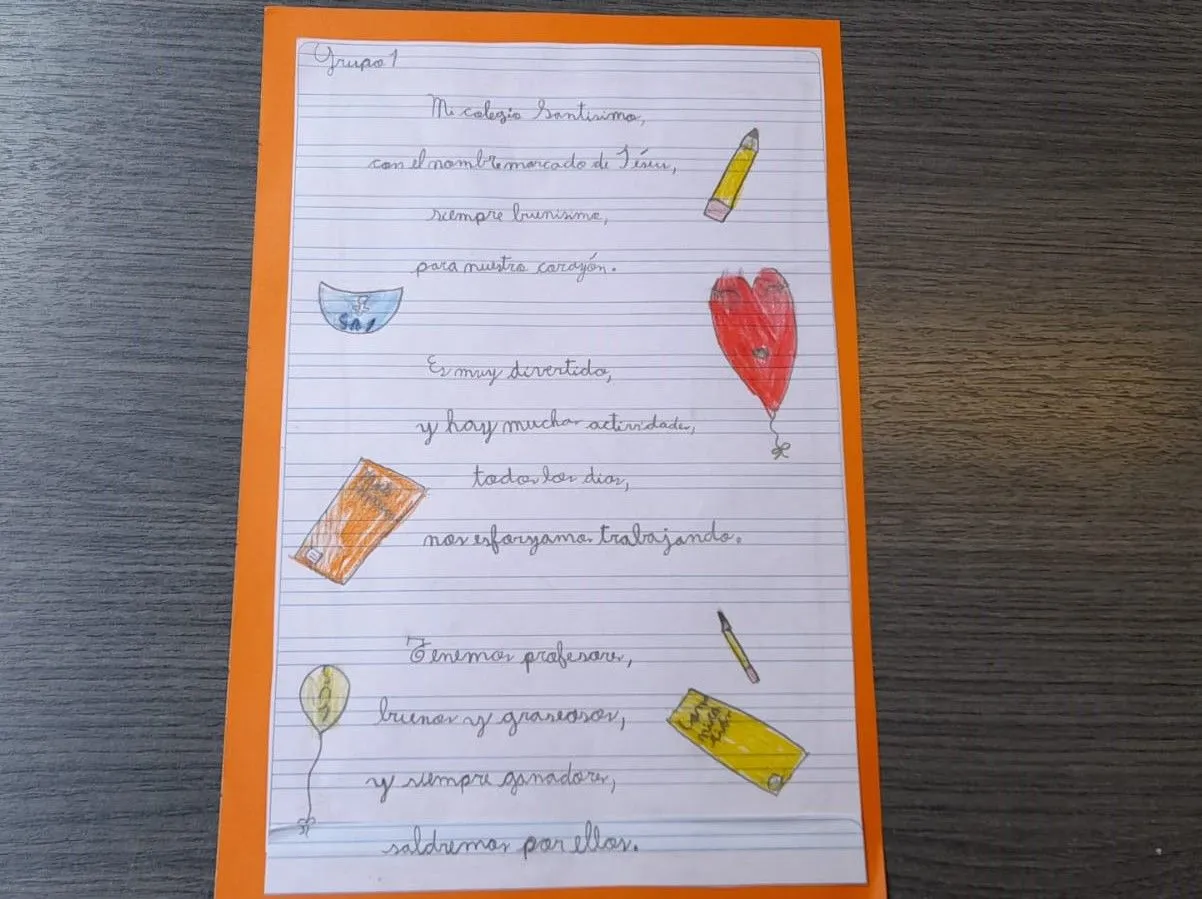 Grupo 1
Mi colegio Santisimo,
con el nombre marcado de Jésus,
siempre buenisimo,
para nuestro corazón.
SAJ
Es muy divertido,
y hay muchas actividades,
todos los dias,
nos esforzamos trabajando.
Tenemos profesores,
buenos y graciosos,
y siempre ganadores,
saldremos por ellos.